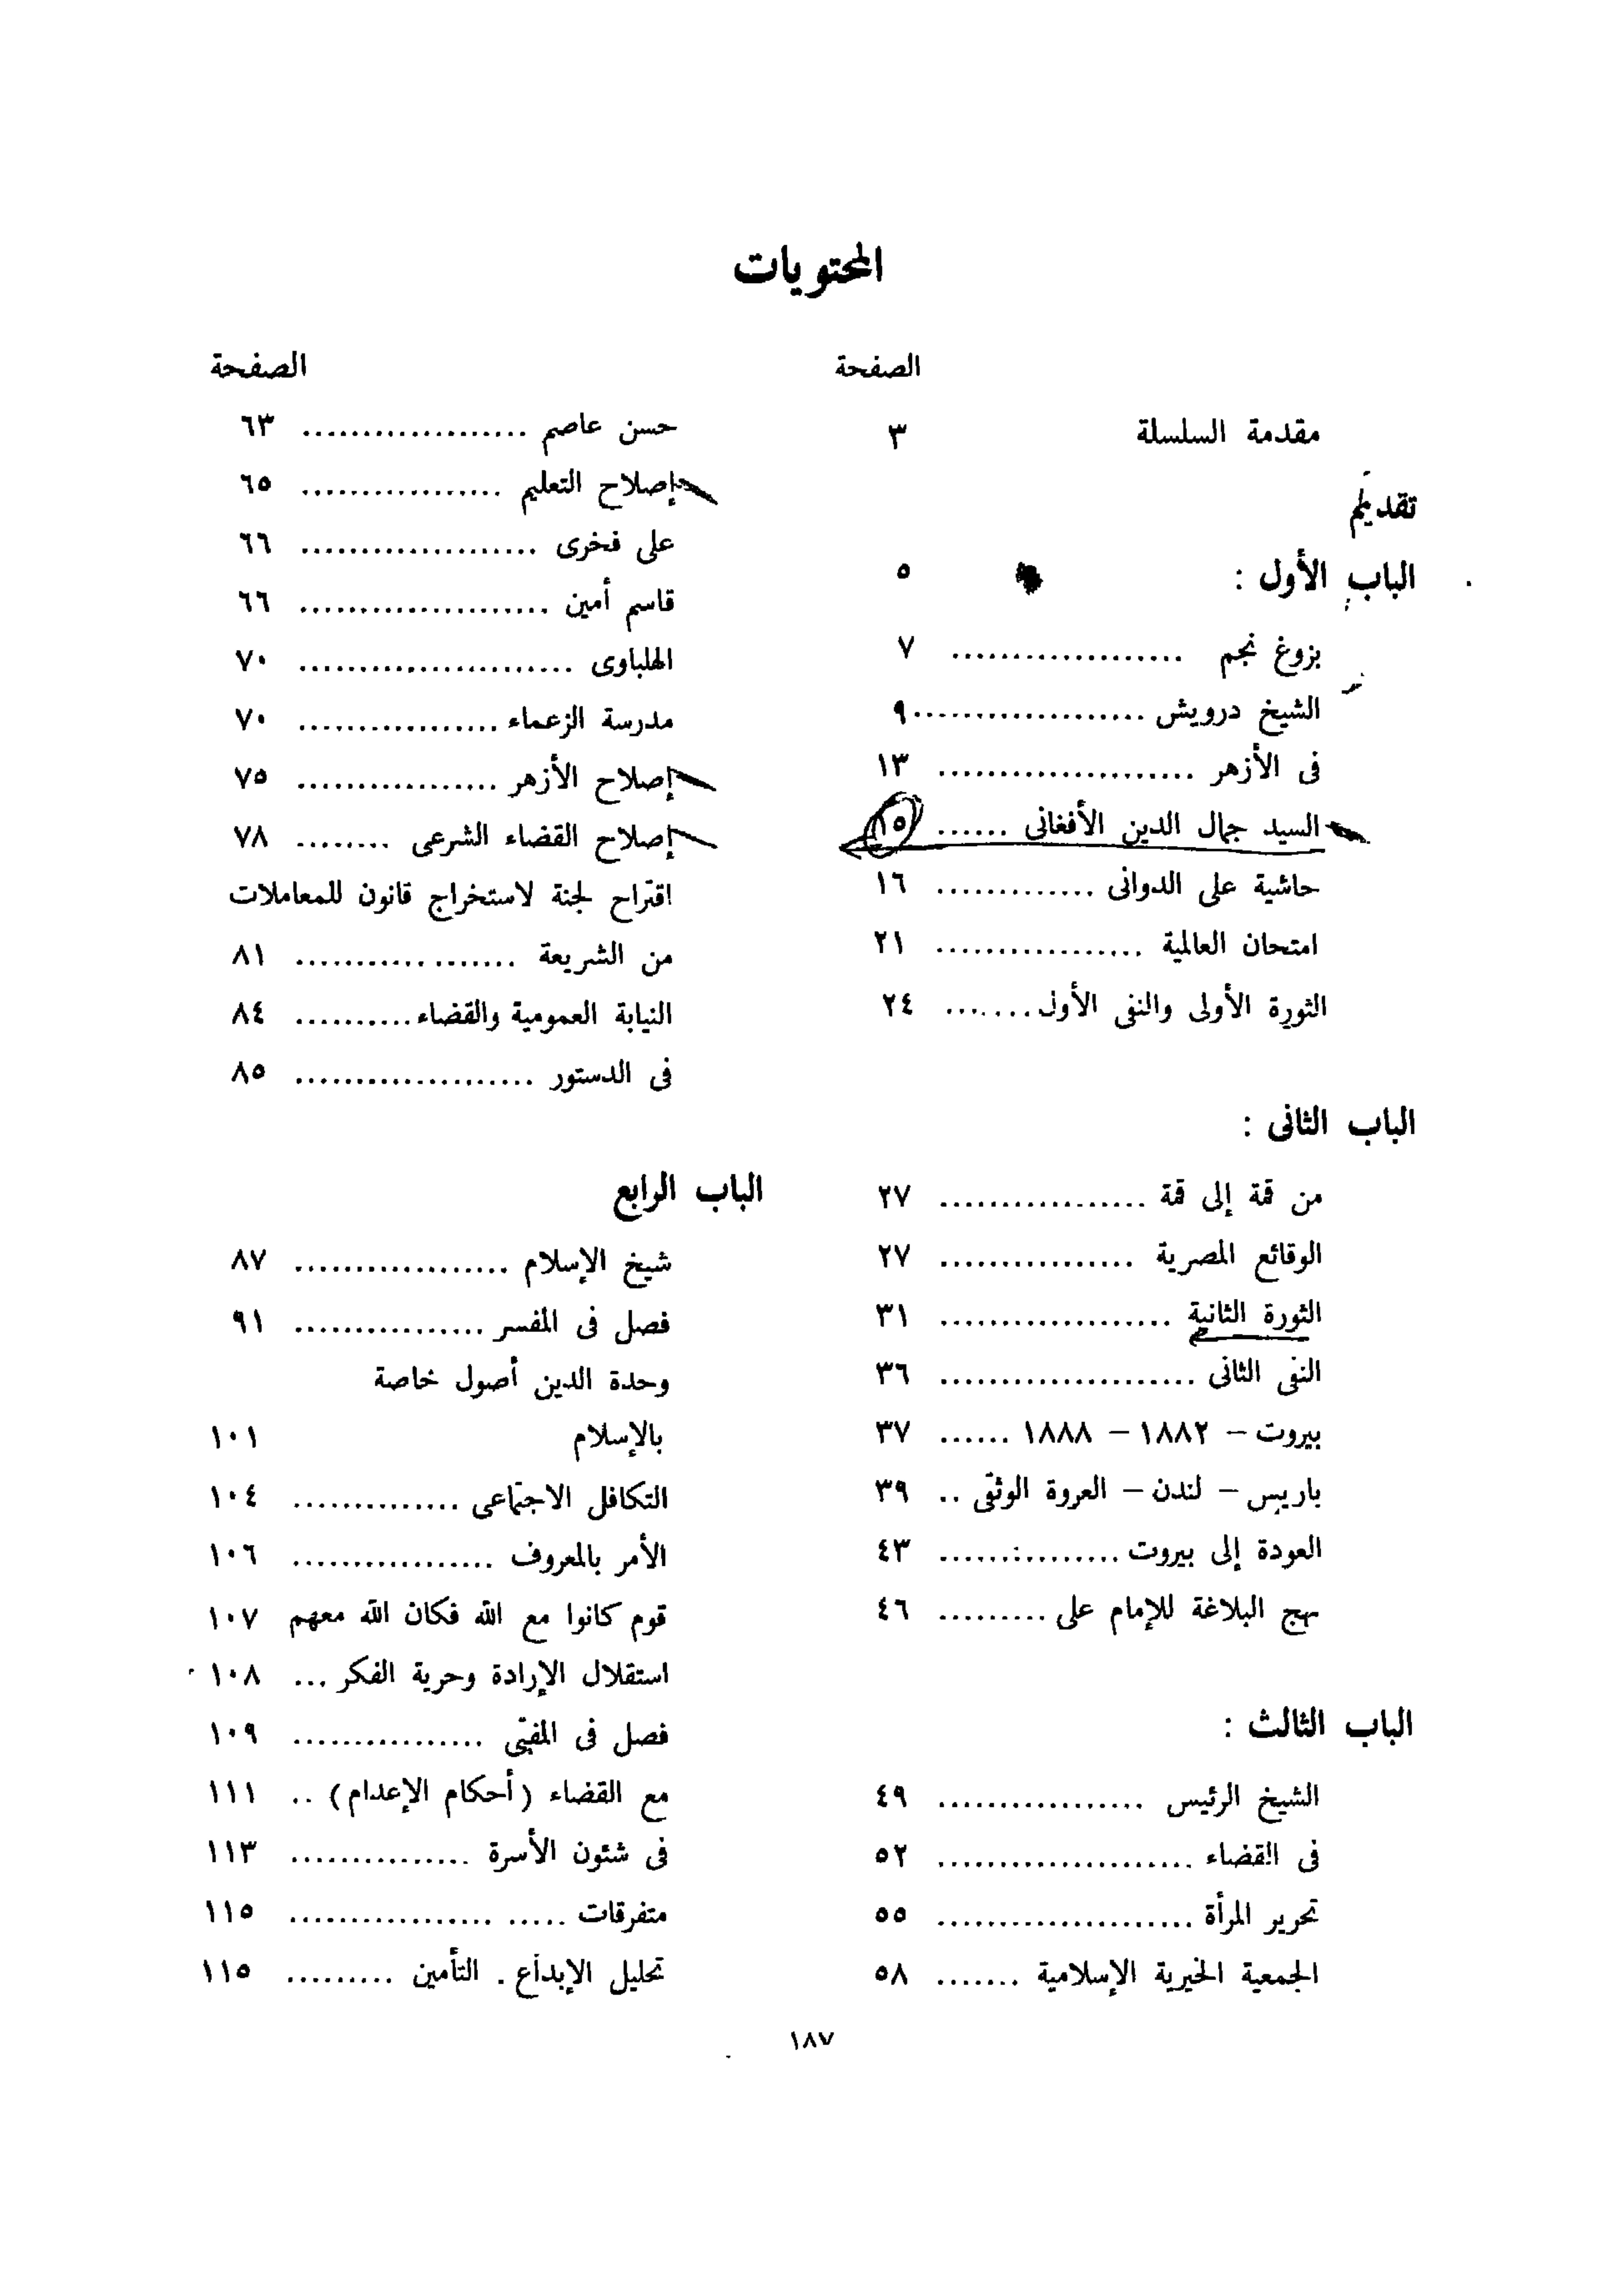 المحتويات
الصفحة
مقدمة السلسلة ٣
تقديم
الباب الأول : ٥
بزوغ نجم ................... ٧
الشيخ درويش ................... ٩
فى الأزهر ..................... ١٣
السيد جمال الدين الأفغانى ...... ١٥
حاشية على الدوانى ............. ١٦
امتحان العالمية ................. ٢١
الثورة الأولى والنفى الأول ....... ٢٤
الباب الثانى :
من قمة إلى قمة ................. ٢٧
الوقائع المصرية ................ ٢٧
الثورة الثانية ................... ٣١
النفى الثانى ..................... ٣٦
بيروت – ١٨٨٢ – ١٨٨٨ ...... ٣٧
باريس – لندن – العروة الوثقى .. ٣٩
العودة إلى بيروت ............... ٤٣
نهج البلاغة للإمام على ......... ٤٦
الباب الثالث :
الشيخ الرئيس ................. ٤٩
فى القضاء ..................... ٥٢
تحرير المرأة ..................... ٥٥
الجمعية الخيرية الإسلامية ....... ٥٨
الصفحة
حسن عاصم ................... ٦٣
إصلاح التعليم ................. ٦٥
على فخرى .................... ٦٦
قاسم أمين ..................... ٦٦
الهلباوى ....................... ٧٠
مدرسة الزعماء ................. ٧٠
إصلاح الأزهر ................. ٧٥
إصلاح القضاء الشرعى ........ ٧٨
اقتراح لجنة لاستخراج قانون للمعاملات
من الشريعة .................. ٨١
النيابة العمومية والقضاء .......... ٨٤
فى الدستور .................... ٨٥
الباب الرابع
شيخ الإسلام .................. ٨٧
فصل فى المفسر ................ ٩١
وحدة الدين أصول خاصة
بالإسلام ١٠١
التكافل الاجتماعى .............. ١٠٤
الأمر بالمعروف ................. ١٠٦
قوم كانوا مع الله فكان الله معهم ١٠٧
استقلال الإرادة وحرية الفكر ... ١٠٨
فصل فى المفتى ................ ١٠٩
مع القضاء (أحكام الإعدام) .. ١١١
فى شئون الأسرة ............... ١١٣
متفرقات ..... ................. ١١٥
تحليل الإبداع . التأمين ......... ١١٥
١٨٧